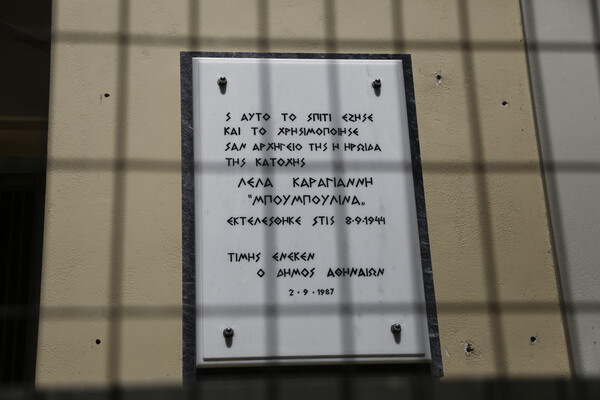 Σ ΑΥΤΟ ΤΟ ΣΠΙΤΙ ΕΖΗΣΕ
ΚΑΙ ΤΟ ΧΡΗΣΙΜΟΠΟΙΗΣΕ
ΣΑΝ ΑΡΧΗΓΕΙΟ ΤΗΣ Η ΗΡΩΙΔΑ
ΤΗΣ ΚΑΤΟΧΗΣ
ΛΕΛΑ ΚΑΡΑΓΙΑΝΝΗ
"ΜΠΟΥΜΠΟΥΛΙΝΑ„
ΕΚΤΕΛΕΣΘΗΚΕ ΣΤΙΣ 8·9·1944
ΤΙΜΗΣ ΕΝΕΚΕΝ
Ο ΔΗΜΟΣ ΑΘΗΝΑΙΩΝ
2 · 9 · 1987